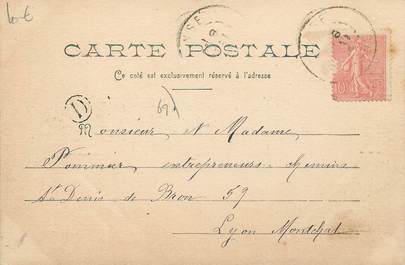 6€
CARTE POSTALE
Ce côté est exclusivement réservé à l'adresse
D
69
Monsieur N Madame
Pommier entrepreneurs
St Denis de Bron 59
Lyon Montchat
10